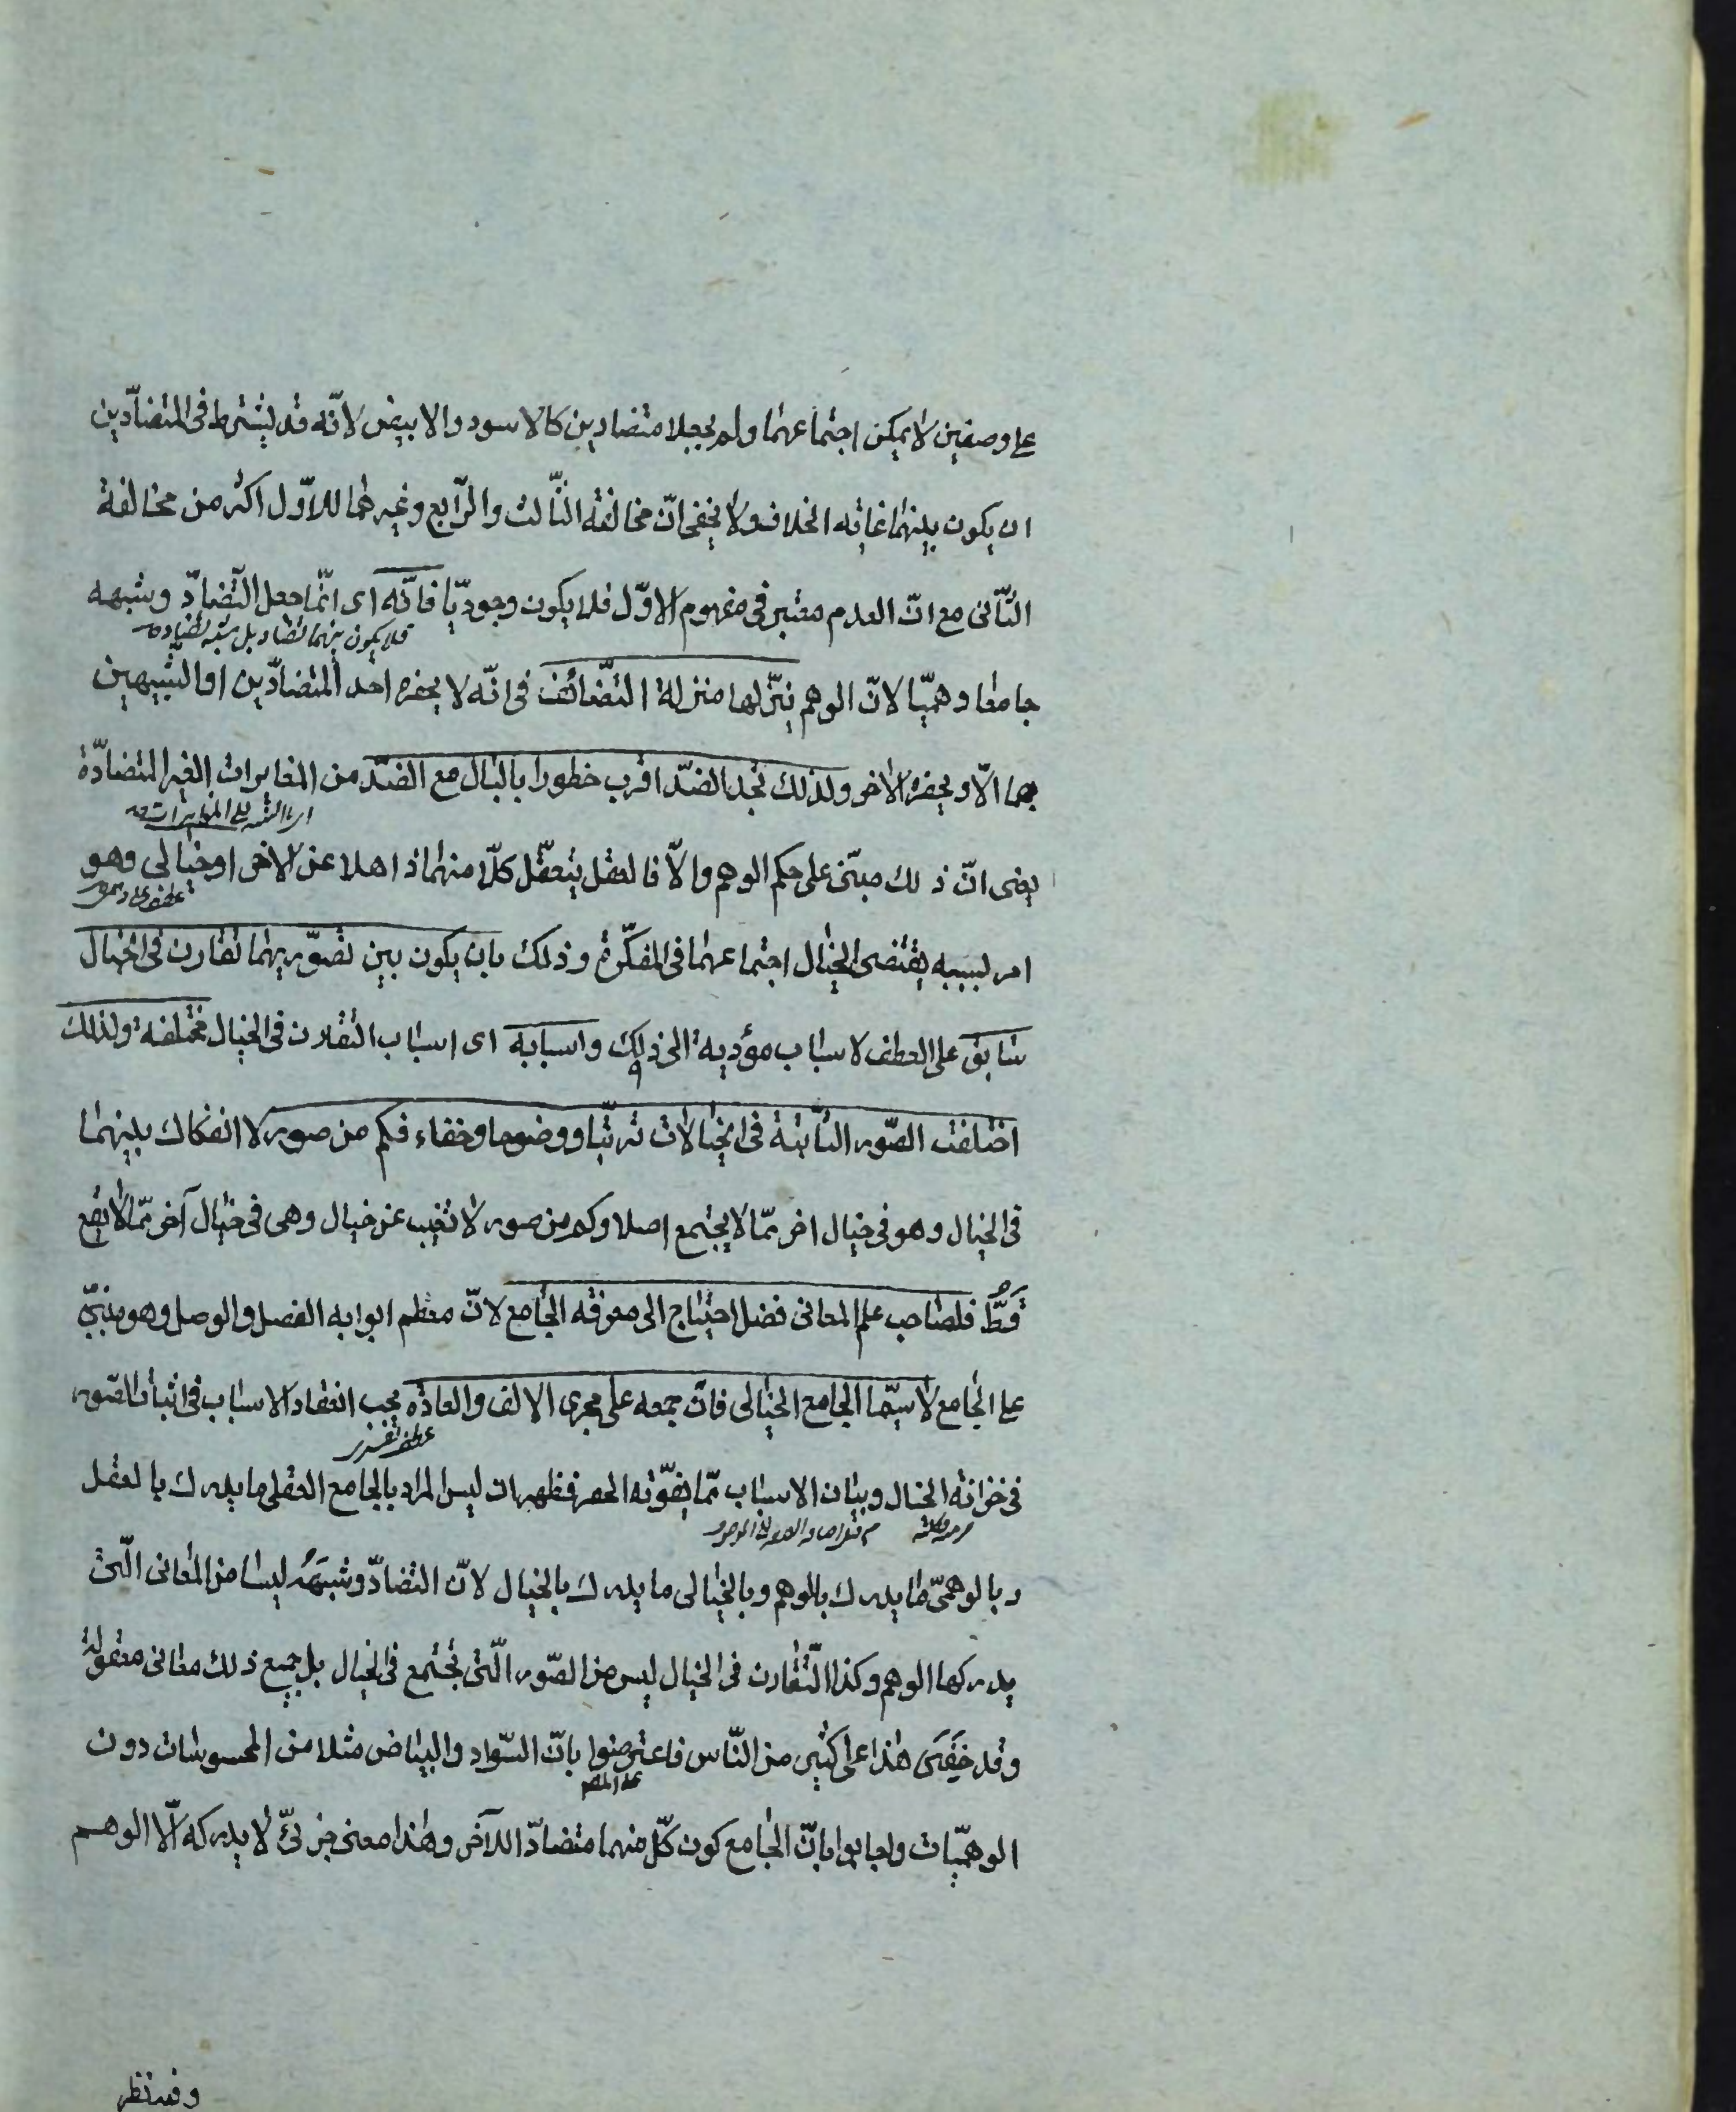 على وصفين لا يمكن اجتماعهما ولم يجعلا متضادين كالاسود والابيض لانّه قد يشترط فى المتضادّين
ان يكون بينهما غاية الخلاف ولا يخفى انّ مخالفة الثّالث والرّابع وغيرهما للاوّل اكثر من مخالفة
الثّانى مع انّ العدم معتبر فى مفهوم الاوّل فلا يكون وجوديّا فانّه اى انّما جعل التّضادّ وشبهه
فلا يكون بينهما تضاد بل شبه تضاد
جامعا وهميّا لانّ الوهم ينزّلها منزلة التّضائف فى انّه لا يحضره احد المتضادّين او الشّبيهين
بهما الّا ويحضره الاخر ولذلك تجد الضدّ اقرب خطورا بالبال مع الضدّ من المغايرات الغير المتضادّة
المغايرات
يعنى انّ ذلك مبنى على حكم الوهم والّا فالعقل يتعقّل كلّا منهما ذاهلا عن الاخر او خيالى وهو
عطف على وهمى
امر بسببه يقتضى الخيال اجتماعهما فى المفكّرة وذلك بان يكون بين تصوّريهما تقارن فى الخيال
سابق على العطف لاسباب مؤدية الى ذلك واسبابه اى اسباب التقارن فى الخيال مختلفة ولذلك
اختلفت الصّور الثّابتة فى الخيالات ترتّبا ووضوحا وخفاء فكم من صور لا انفكاك بينهما
فى الخيال وهو فى خيال اخر ممّا لا يجتمع اصلا وكم من صور لا تغيب عن خيال وهى فى خيال آخر ممّا لا يقع
قطّ فلصاحب علم المعانى فضل احتياج الى معرفة الجامع لانّ معظم ابوابه الفصل والوصل وهو مبنىّ
على الجامع لا سيّما الجامع الخيالى فانّ جمعه على مجرى الالف والعادة بحسب انعقاد الاسباب فى اثبات الصّور
عطف تفسير
فى خزانة الخيال وبيان الاسباب ممّا يفوّته الحصر فظهر ان ليس المراد بالجامع العقلى ما يدرك بالعقل
وبالوهمىّ ما يدرك بالوهم وبالخيالى ما يدرك بالخيال لانّ التضادّ وشبهه ليسا من المعانى الّتى
يدركها الوهم وكذا التّقارن فى الخيال ليس من الصّور الّتى تجتمع فى الخيال بل جميع ذلك معانى معقولة
وقد خفى هذا على كثير من النّاس فاعترضوا بانّ السّواد والبياض مثلا من المحسوسات دون
على المصـ
الوهميّات واجابوا بانّ الجامع كون كلّ منهما متضادّا للآخر وهذا معنى جزئىّ لا يدركه الّا الوهم
وفيه نظر